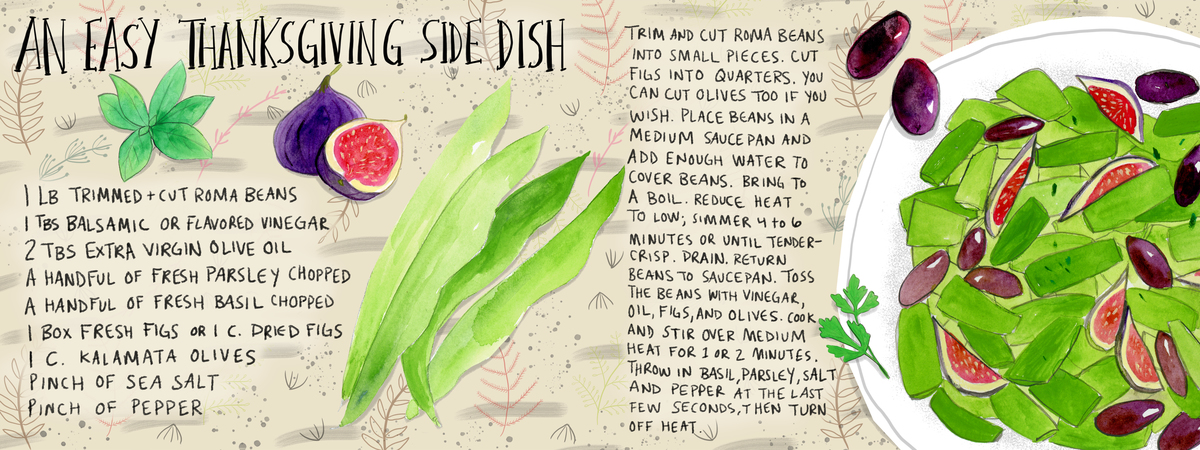 AN EASY THANKSGIVING SIDE DISH
1 LB TRIMMED + CUT ROMA BEANS
1 TBS BALSAMIC OR FLAVORED VINEGAR
2 TBS EXTRA VIRGIN OLIVE OIL
A HANDFUL OF FRESH PARSLEY CHOPPED
A HANDFUL OF FRESH BASIL CHOPPED
1 BOX FRESH FIGS OR 1 C. DRIED FIGS
1 C. KALAMATA OLIVES
PINCH OF SEA SALT
PINCH OF PEPPER
TRIM AND CUT ROMA BEANS
INTO SMALL PIECES. CUT
FIGS INTO QUARTERS. YOU
CAN CUT OLIVES TOO IF YOU
WISH. PLACE BEANS IN A
MEDIUM SAUCEPAN AND
ADD ENOUGH WATER TO
COVER BEANS. BRING TO
A BOIL. REDUCE HEAT
TO LOW; SIMMER 4 to 6
MINUTES OR UNTIL TENDER-
CRISP. DRAIN. RETURN
BEANS TO SAUCEPAN. TOSS
THE BEANS WITH VINEGAR,
OIL, FIGS, AND OLIVES. COOK
AND STIR OVER MEDIUM
HEAT FOR 1 OR 2 MINUTES.
THROW IN BASIL, PARSLEY, SALT
AND PEPPER AT THE LAST
FEW SECONDS, THEN TURN
OFF HEAT.